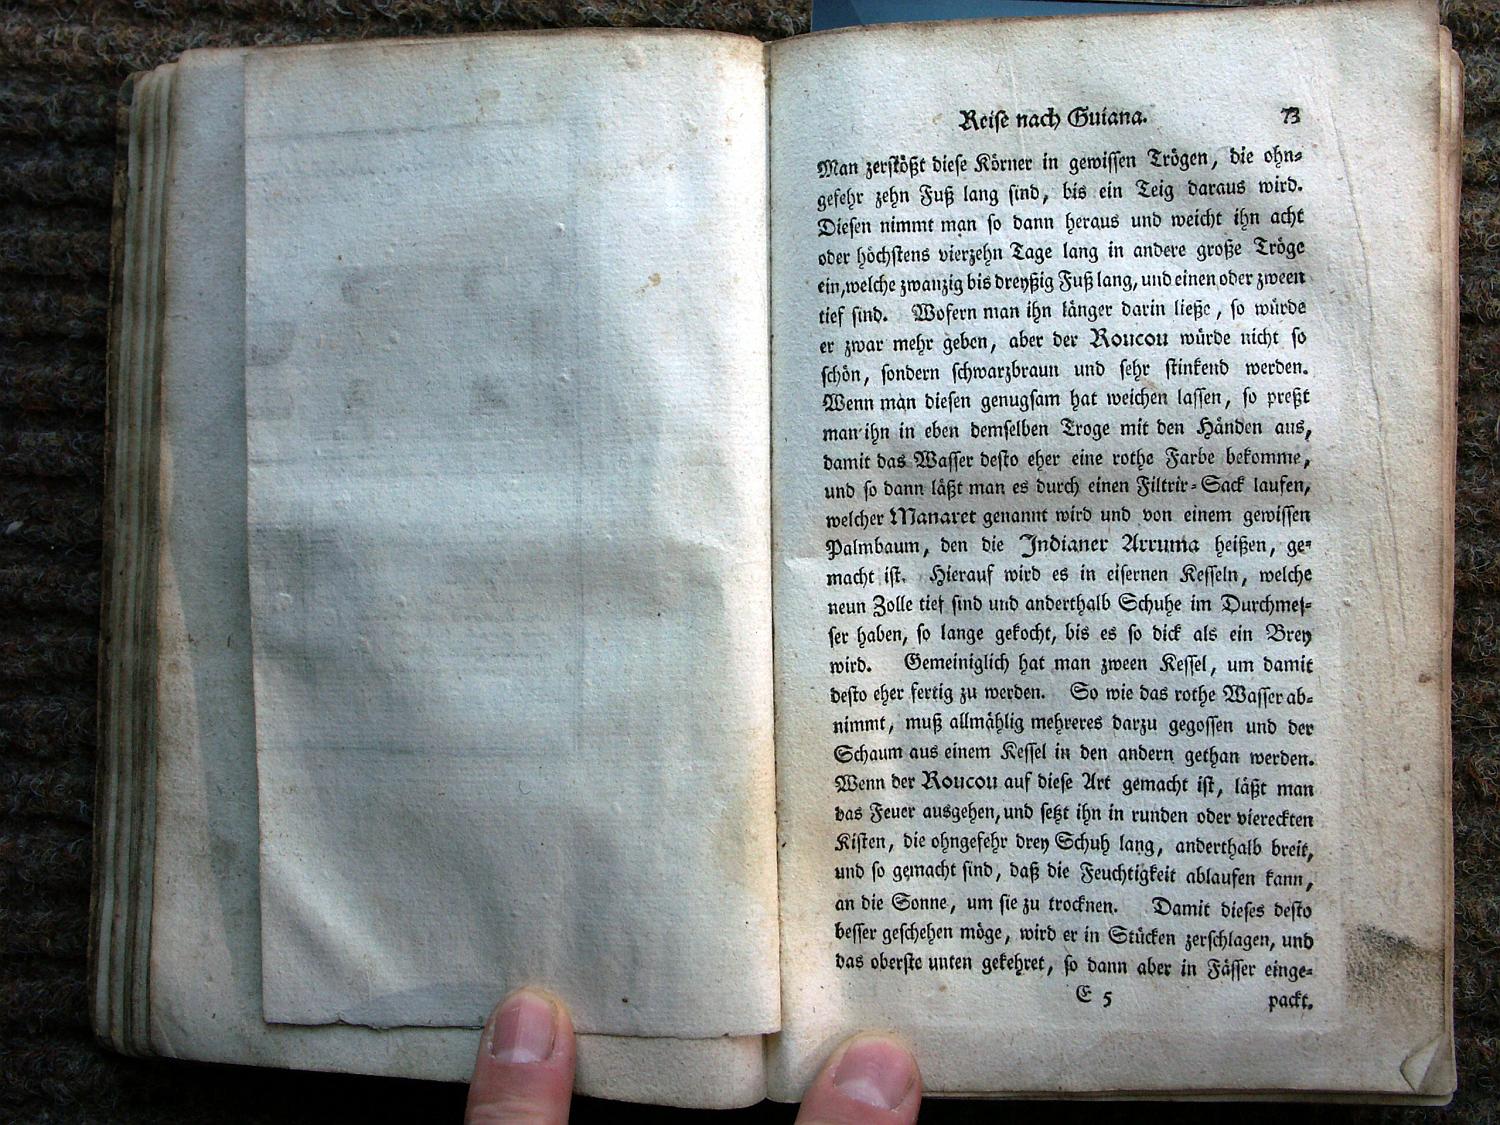 Reise nach Guiana. 73
Man zerstößt diese Körner in gewissen Trögen, die ohn-
gefehr zehn Fuß lang sind, bis ein Teig daraus wird.
Diesen nimmt man so dann heraus und weicht ihn acht
oder höchstens vierzehn Tage lang in andere große Tröge
ein, welche zwanzig bis dreyßig Fuß lang, und einen oder zween
tief sind. Wofern man ihn länger darin ließe, so würde
er zwar mehr geben, aber der Roucou würde nicht so
schön, sondern schwarzbraun und sehr stinkend werden.
Wenn man diesen genugsam hat weichen lassen, so preßt
man ihn in eben demselben Troge mit den Händen aus,
damit das Wasser desto eher eine rothe Farbe bekomme,
und so dann läßt man es durch einen Filtrir-Sack laufen,
welcher Manaret genannt wird und von einem gewissen
Palmbaum, den die Indianer Arruma heißen, ge-
macht ist. Hierauf wird es in eisernen Kesseln, welche
neun Zolle tief sind und anderthalb Schuhe im Durchmes-
ser haben, so lange gekocht, bis es so dick als ein Brey
wird. Gemeiniglich hat man zween Kessel, um damit
desto eher fertig zu werden. So wie das rothe Wasser ab-
nimmt, muß allmählig mehreres darzu gegossen und der
Schaum aus einem Kessel in den andern gethan werden.
Wenn der Roucou auf diese Art gemacht ist, läßt man
das Feuer ausgehen, und setzt ihn in runden oder viereckten
Kisten, die ohngefehr drey Schuh lang, anderthalb breit,
und so gemacht sind, daß die Feuchtigkeit ablaufen kann,
an die Sonne, um sie zu trocknen. Damit dieses desto
besser geschehen möge, wird er in Stücken zerschlagen, und
das oberste unten gekehret, so dann aber in Fässer einge-
E 5 packt.